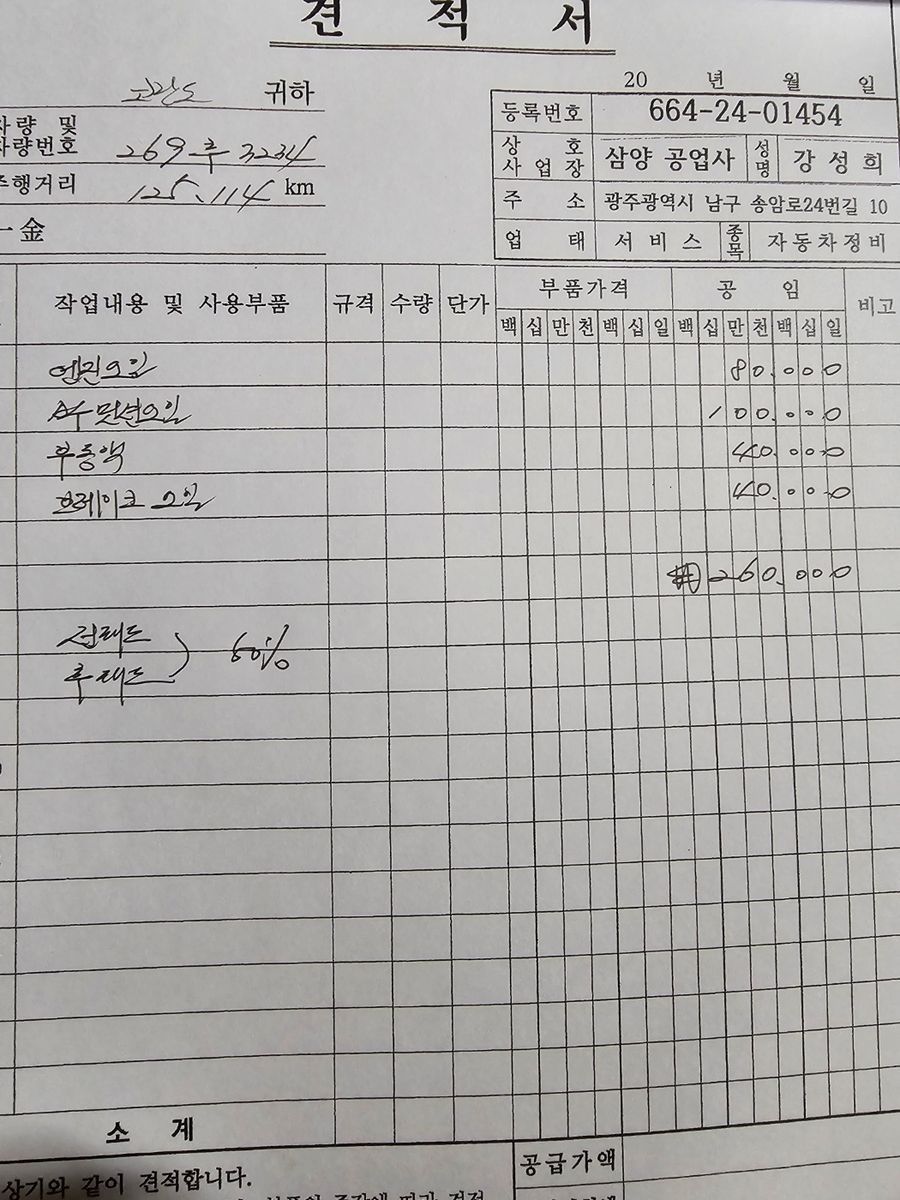 견 적 서
코란도 귀하
차량 및
차량번호 269루3234
주행거리 125,114 km
一金
20 년 월 일
등록번호 664-24-01454
상 호
사 업 장 삼양 공업사 성명 강성희
주 소 광주광역시 남구 송암로24번길 10
업 태 서비스 종목 자동차정비
작업내용 및 사용부품 규격 수량 단가 부품가격 공 임 비고
백 십 만 천 백 십 일 백 십 만 천 백 십 일
엔진오일 80.000
미션오일 100.000
부동액 40.000
브레이크 오일 40.000
260.000
전패드
후패드 60%
소 계
상기와 같이 견적합니다.
공급가액